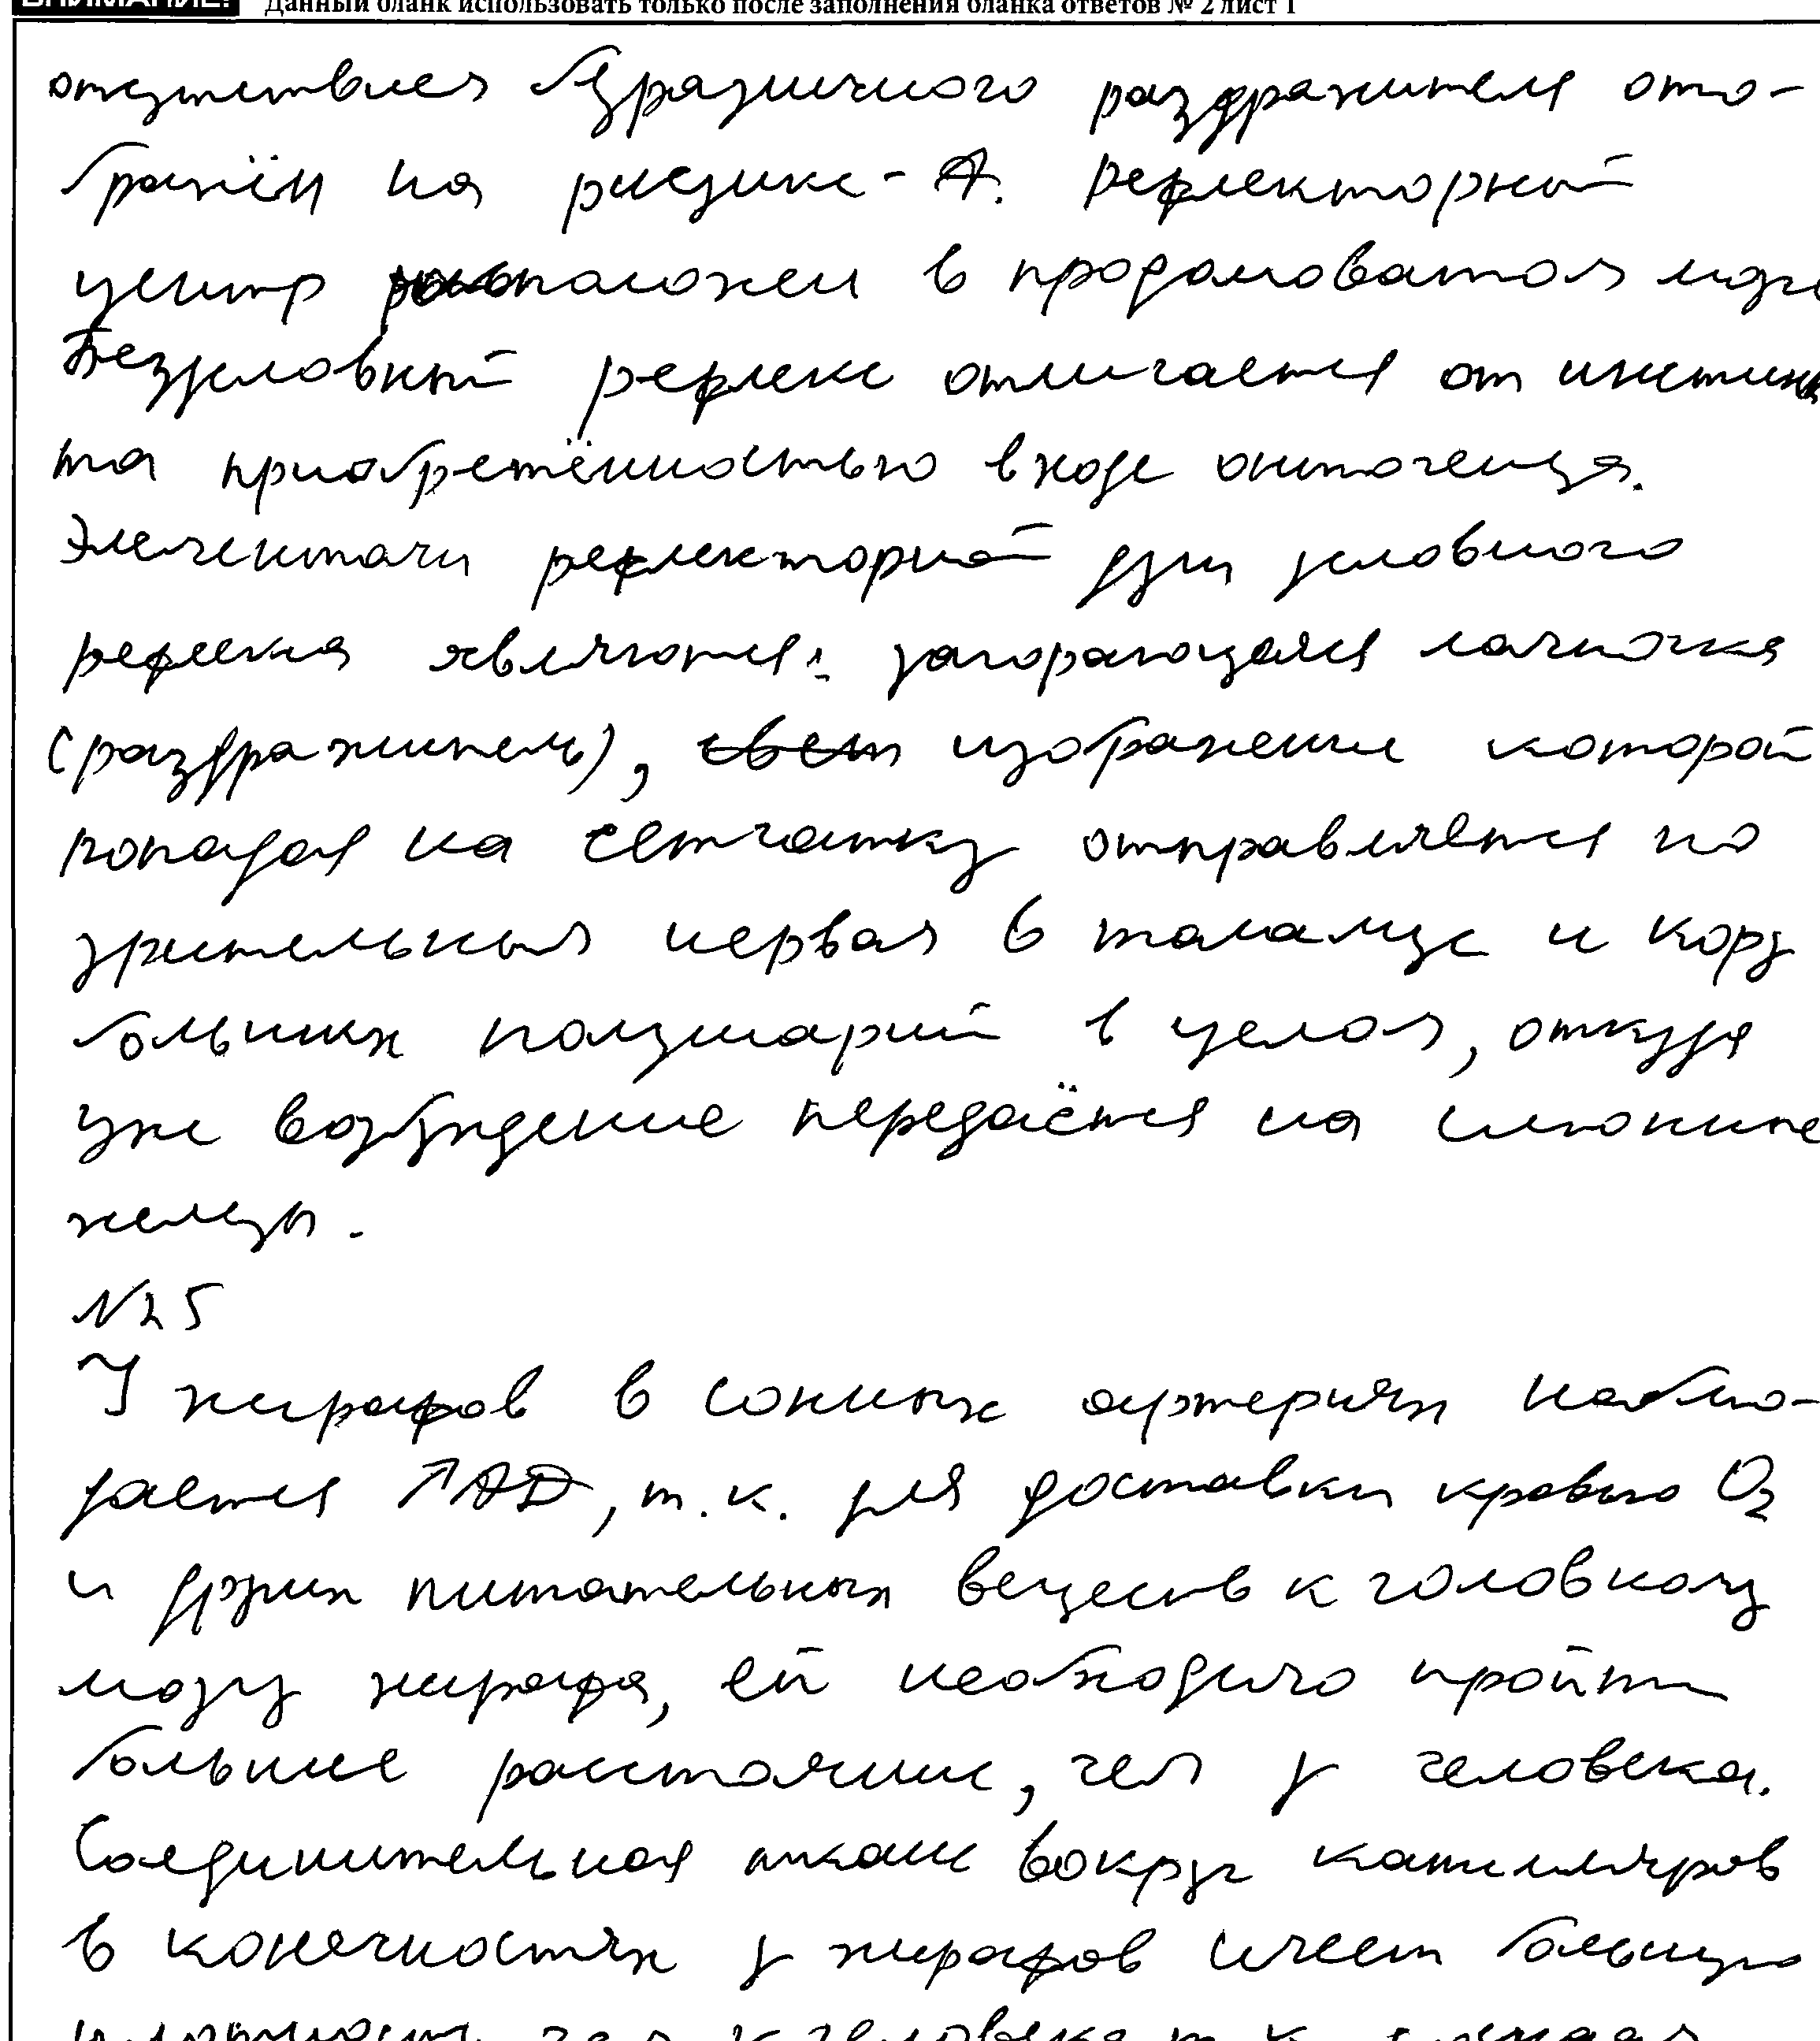 ВНИМАНИЕ! Данный бланк использовать только после заполнения бланка ответов № 2 лист 1
отсутствием безразличного раздражителя ото-
бражён на рисунке - А. Рефлекторный
центр расположен в продолговатом мозге
Безусловный рефлекс отличается от инстинк
та приобретённостью в ходе онтогенеза.
Элементами рефлекторной дуги условного
рефлекса являются: загорающаяся лампочка
(раздражитель), изображение которой
попадая на сетчатку отправляется по
зрительным нервам в таламус и кору
больших полушарий в целом, откуда
уже возбуждение передаётся на слюнные
железы.
№25
У жирафов в сонных артериях наблю-
дается ↑АД, т.к. для доставки кровью O₂
и других питательных веществ к головному
мозгу жирафа, ей необходимо пройти
большее расстояние, чем у человека.
Соединительная ткань вокруг капилляров
в конечностях у жирафов имеет большую
плотность, чем у человека т.к.